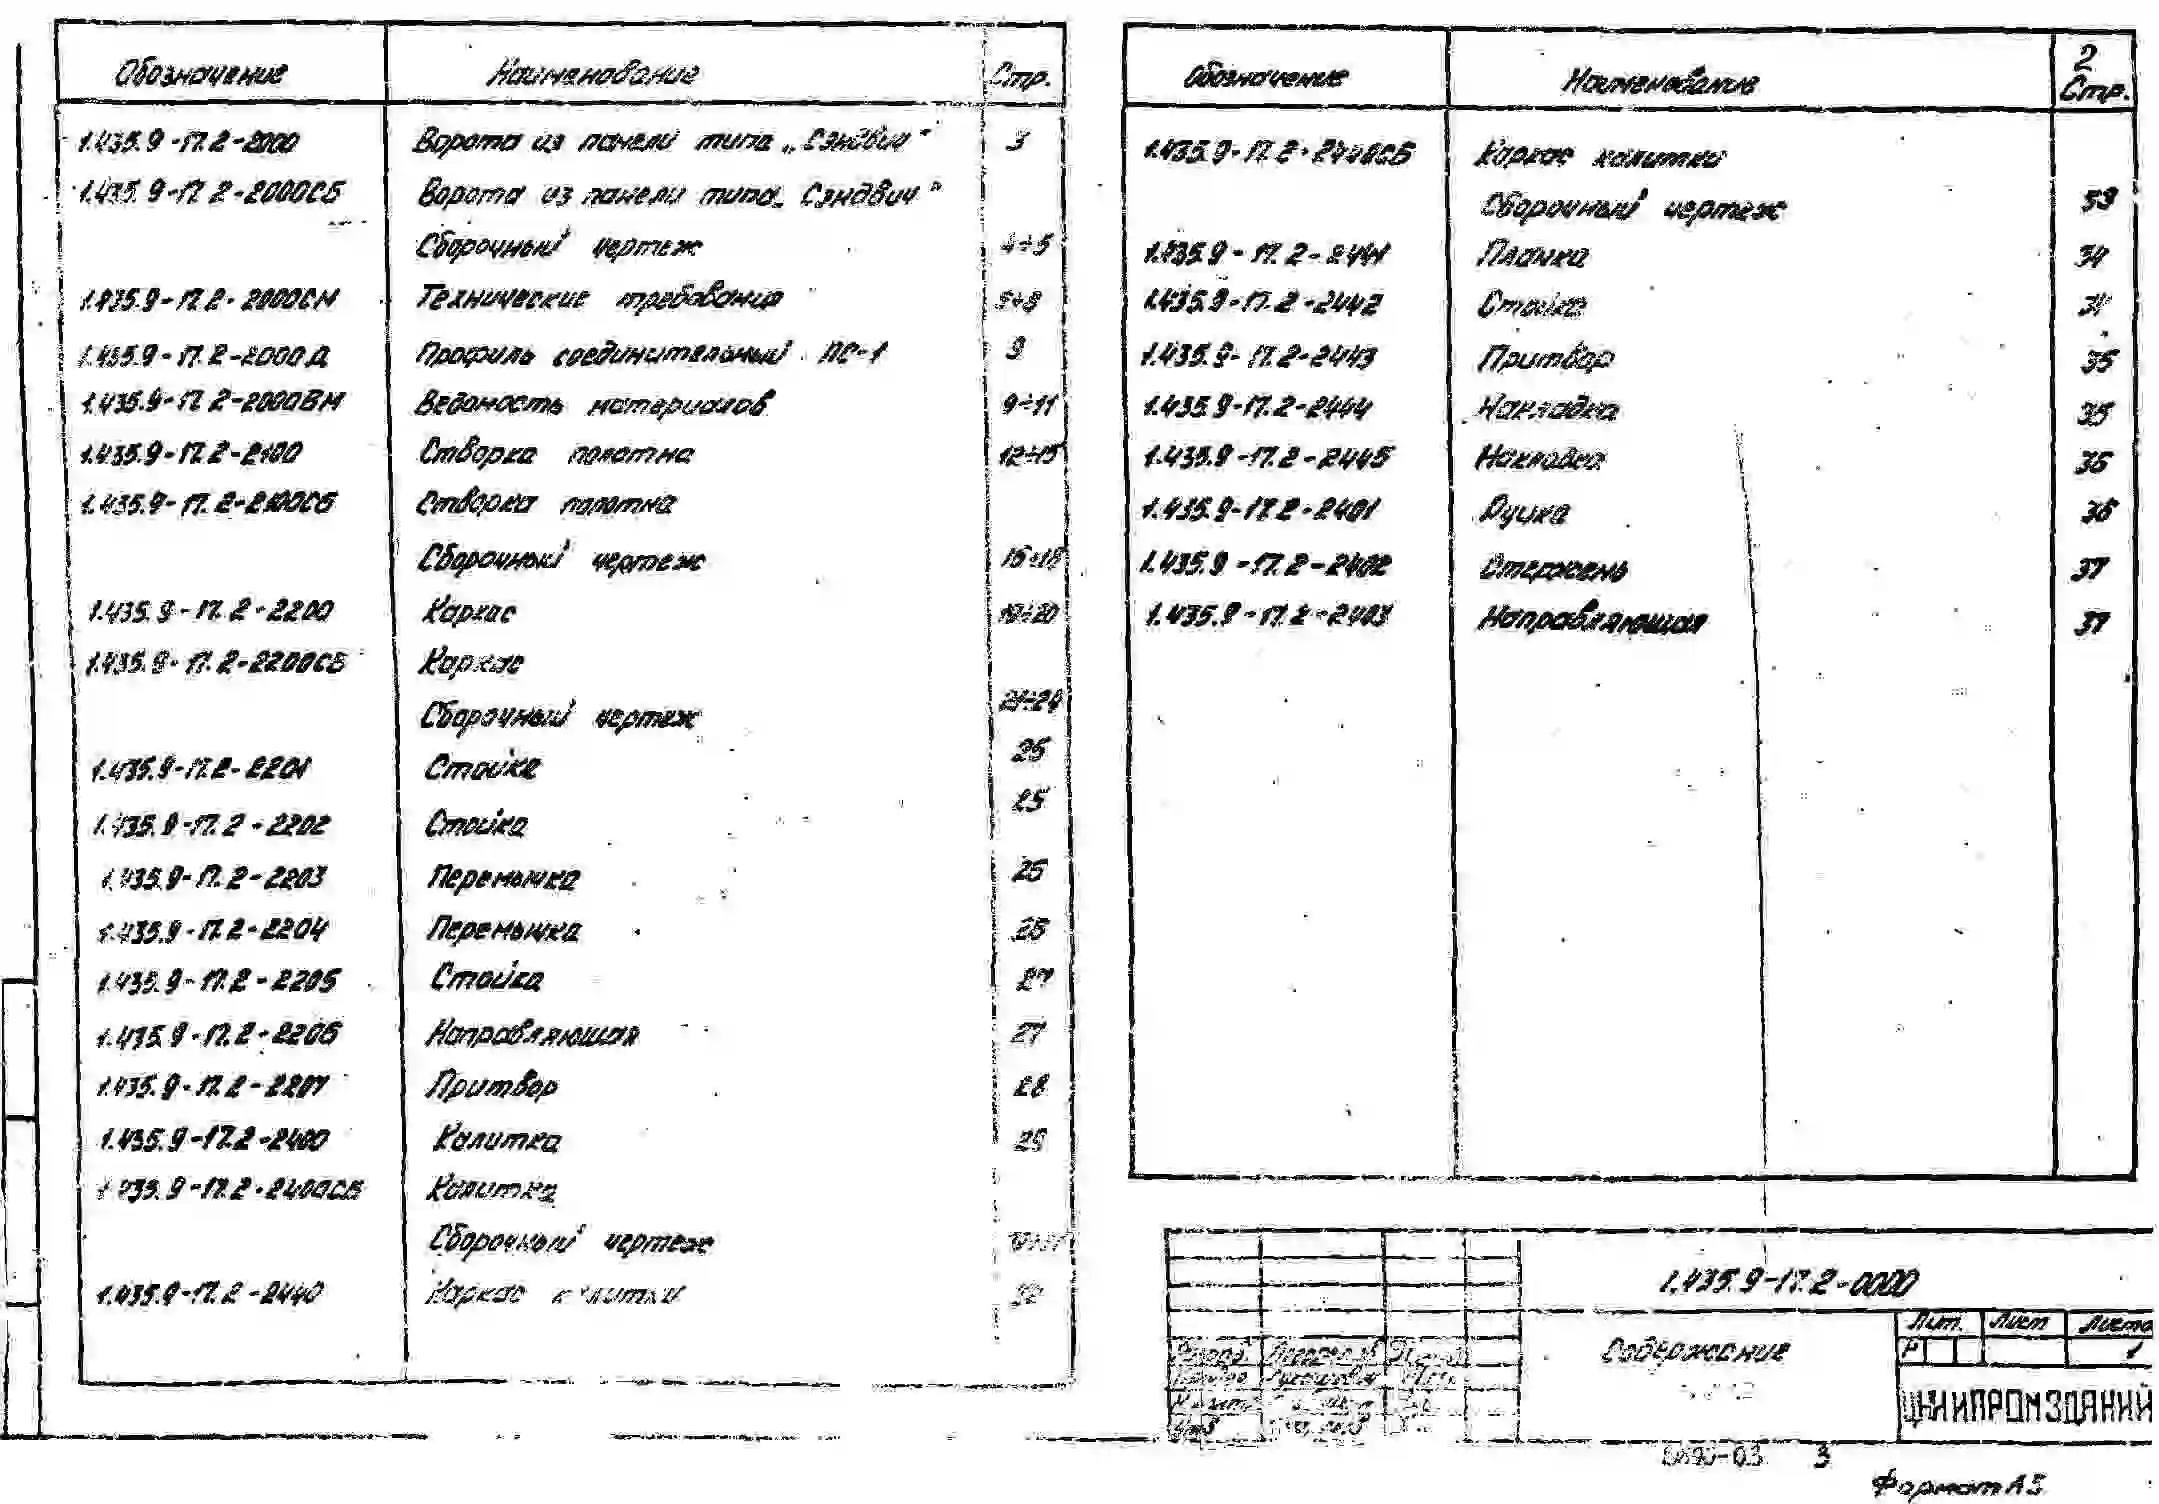 Обозначение Наименование Стр.
1.435.9-17.2-2000 Ворота из панели типа „Сэндвич" 3
1.435.9-17.2-2000СБ Ворота из панели типа „Сэндвич"
Сборочный чертеж 4÷5
1.435.9-17.2-2000СМ Технические требования
1.435.9-17.2-2000Д Профиль соединительный ПС-1 9
1.435.9-17.2-2000ВМ Ведомость материалов 9÷11
1.435.9-17.2-2100 Створка полотна 12÷15
1.435.9-17.2-2100СБ Створка полотна
Сборочный чертеж 16÷18
1.435.9-17.2-2200 Каркас 19÷20
1.435.9-17.2-2200СБ Каркас
Сборочный чертеж 21÷24
1.435.9-17.2-2201 Стойка 25
1.435.9-17.2-2202 Стойка 25
1.435.9-17.2-2203 Перемычка 26
1.435.9-17.2-2204 Перемычка 26
1.435.9-17.2-2205 Стойка 27
1.435.9-17.2-2206 Направляющая 27
1.435.9-17.2-2207 Притвор 28
1.435.9-17.2-2400 Калитка 29
1.435.9-17.2-2400СБ Калитка
Сборочный чертеж
1.435.9-17.2-2440 Каркас калитки 32
2
Обозначение Наименование Стр.
1.435.9-17.2-2440СБ Каркас калитки
Сборочный чертеж 33
1.435.9-17.2-2441 Планка 34
1.435.9-17.2-2442 Стойка 34
1.435.9-17.2-2443 Притвор 35
1.435.9-17.2-2444 Накладка 35
1.435.9-17.2-2445 Накладка 36
1.435.9-17.2-2401 Ручка 36
1.435.9-17.2-2402 Стержень 37
1.435.9-17.2-2403 Направляющая 37
1.435.9-17.2-0000
Содержание
Лит. Лист Листо
Р 1
ЦНИИПРОМЗДАНИЙ
3
Формат А3